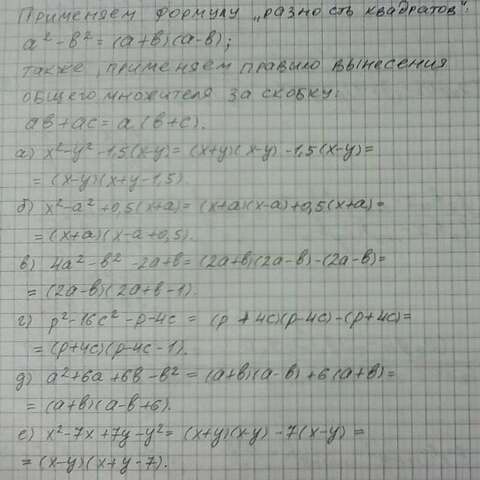 Применяем формулу „разность квадратов":
a² - b² = (a+b)(a-b);
также применяем правило вынесения
общего множителя за скобку:
ab + ac = a(b+c).
а) x²-y²-1,5(x-y) = (x+y)(x-y) -1,5(x-y)=
= (x-y)(x+y-1,5).
б) x²-a²+0,5(x+a) = (x+a)(x-a)+0,5(x+a)=
= (x+a)(x-a+0,5).
в) 4a²-b²-2a+b = (2a+b)(2a-b)-(2a-b)=
= (2a-b)(2a+b-1).
г) p²-16c²-p-4c = (p+4c)(p-4c)-(p+4c)=
= (p+4c)(p-4c-1).
д) a²+6a+6b-b² = (a+b)(a-b)+6(a+b)=
= (a+b)(a-b+6).
е) x²-7x+7y-y² = (x+y)(x-y)-7(x-y) =
= (x-y)(x+y-7).